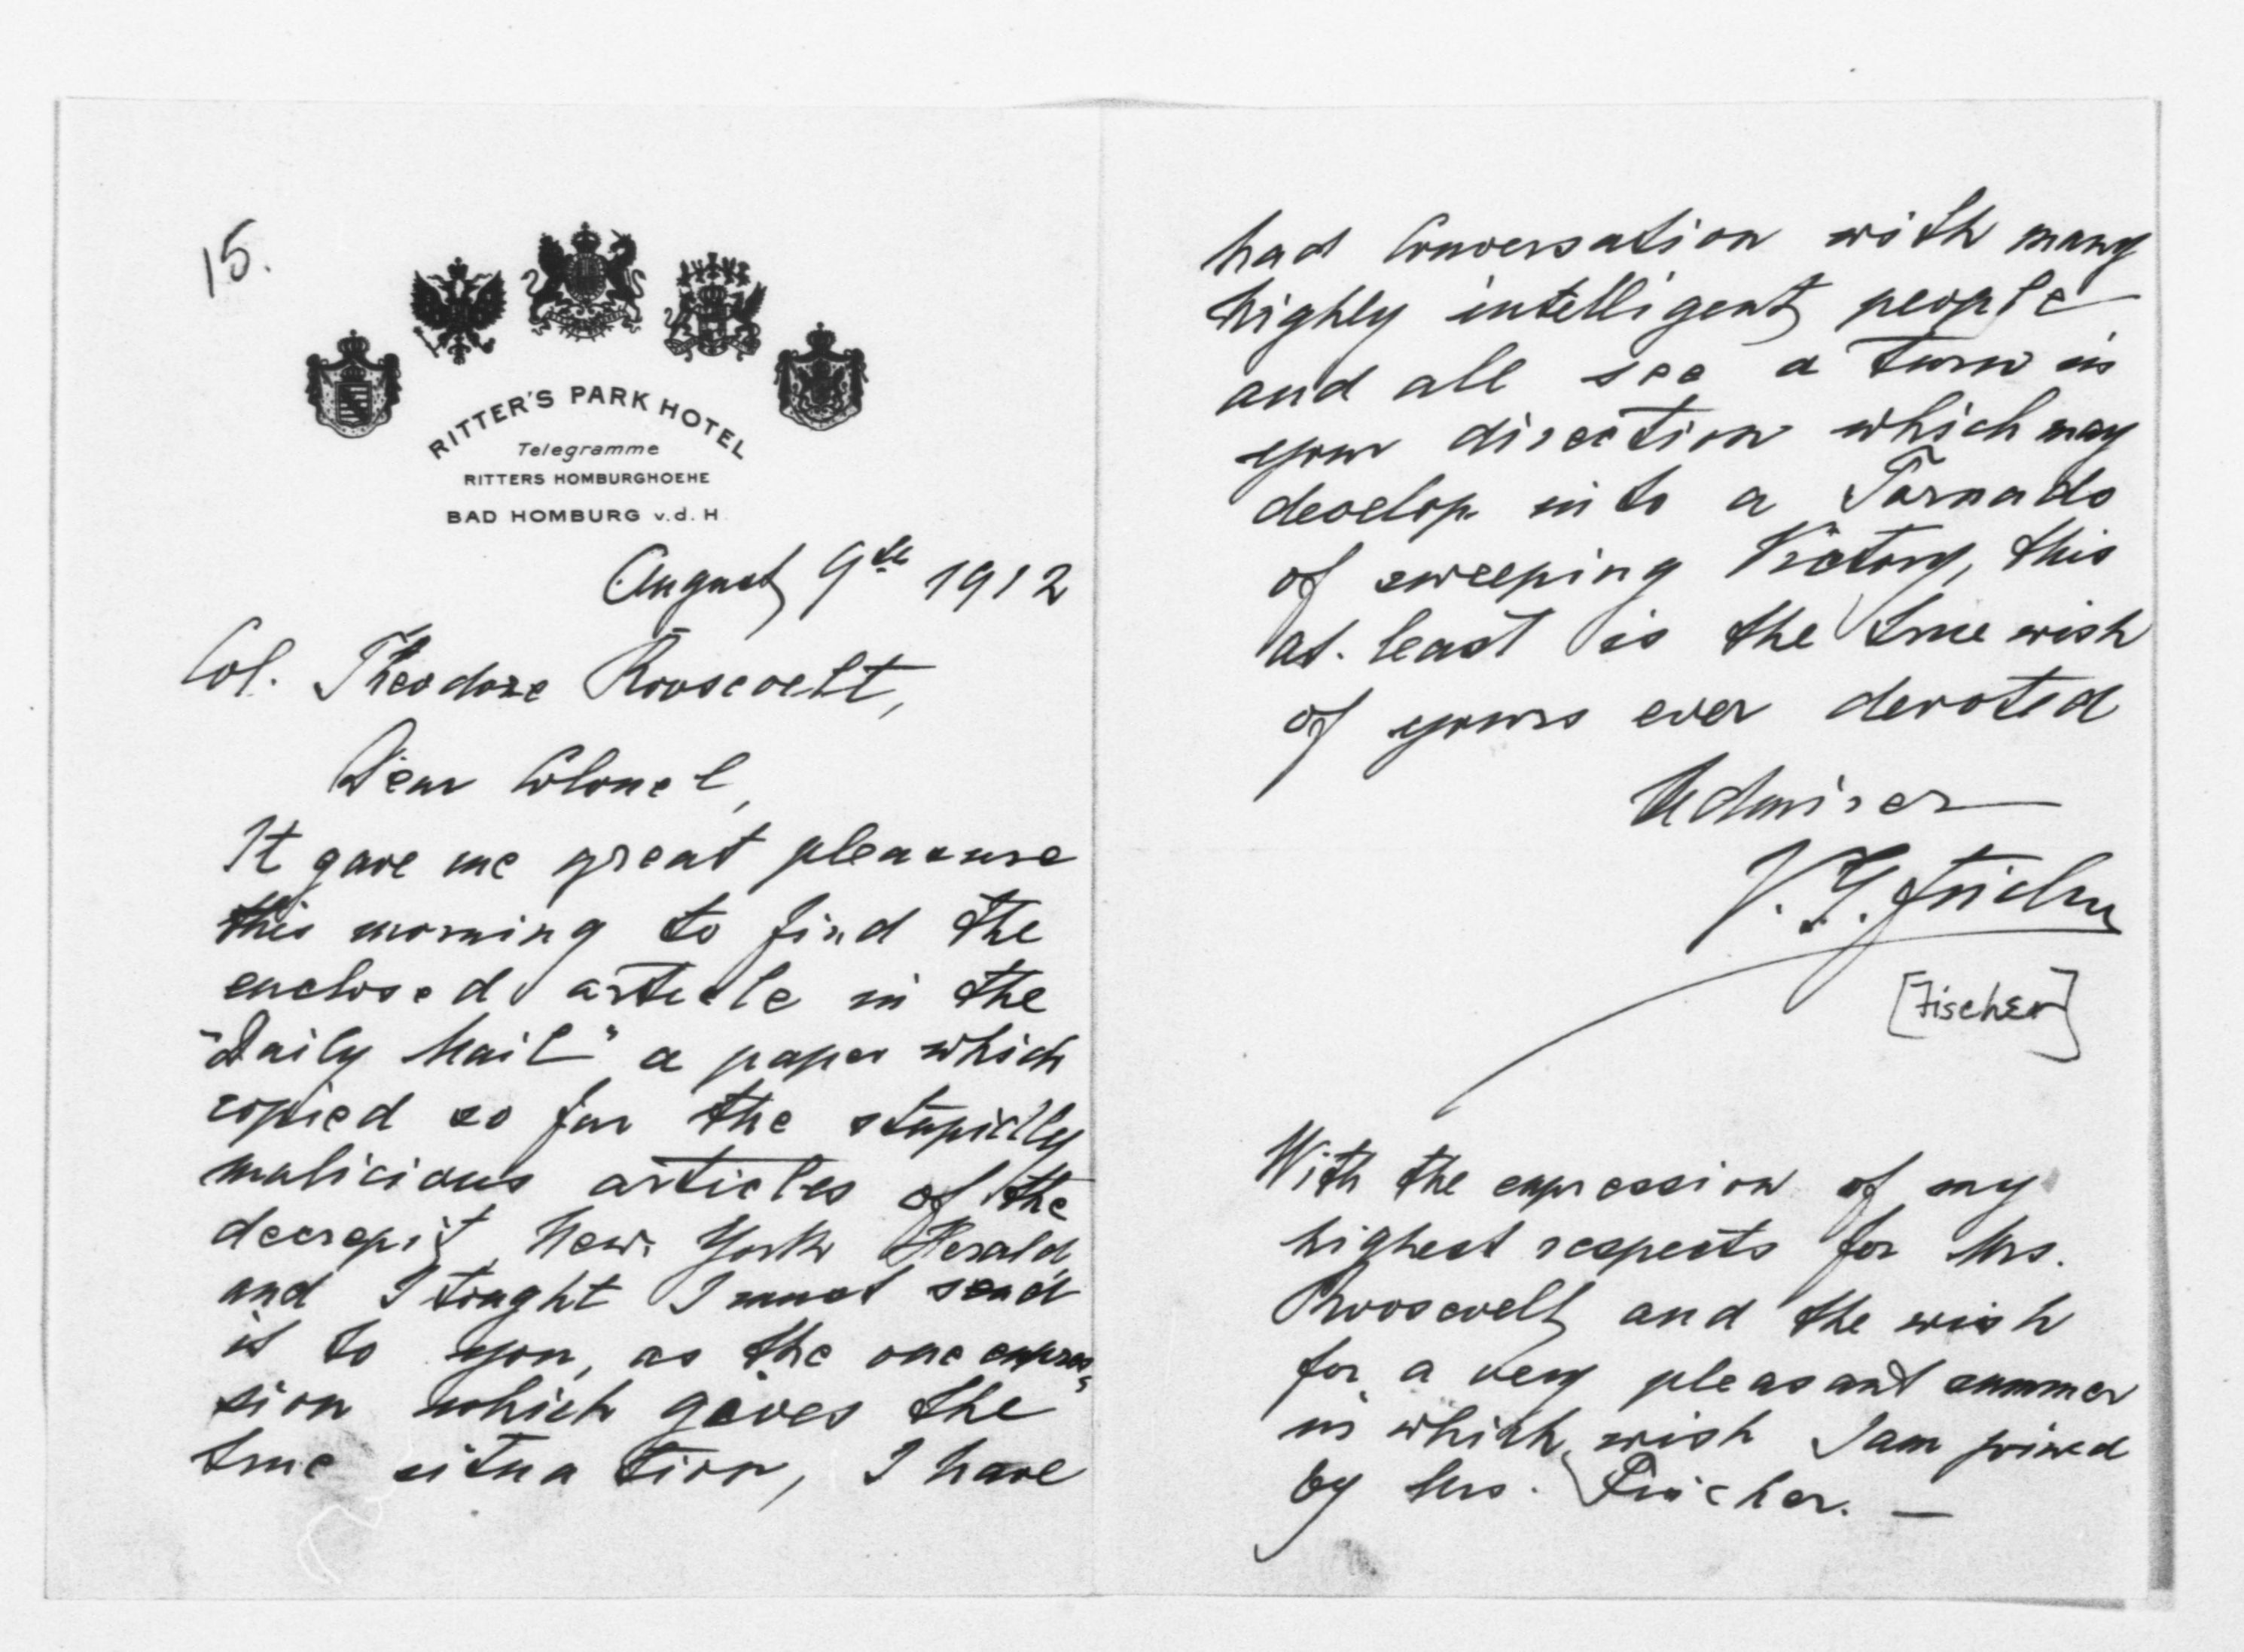 15.
RITTER'S PARK HOTEL
Telegramme
RITTERS HOMBURGHOEHE
BAD HOMBURG v.d.H.
August 9th 1912
Col. Theodore Roosevelt,
Dear Colonel,
It gave me great pleasure
this morning to find the
enclosed article in the
"Daily Mail" a paper which
copied so far the stupidly
malicious articles of the
decrepit New York Herald,
and I tought I must send
it to you, as the one expres-
sion which gives the
true situation, I have
had Conversation with many
highly intelligent people
and all see a turn in
your direction which may
develop into a Tornado
of sweeping Victory, this
at least is the true wish
of yours ever devoted
Admirer
V. Fischer
[Fischer]
With the expression of my
highest respects for Mrs.
Roosevelt and the wish
for a very pleasant summer
in which wish I am joined
by Mrs. Fischer. —